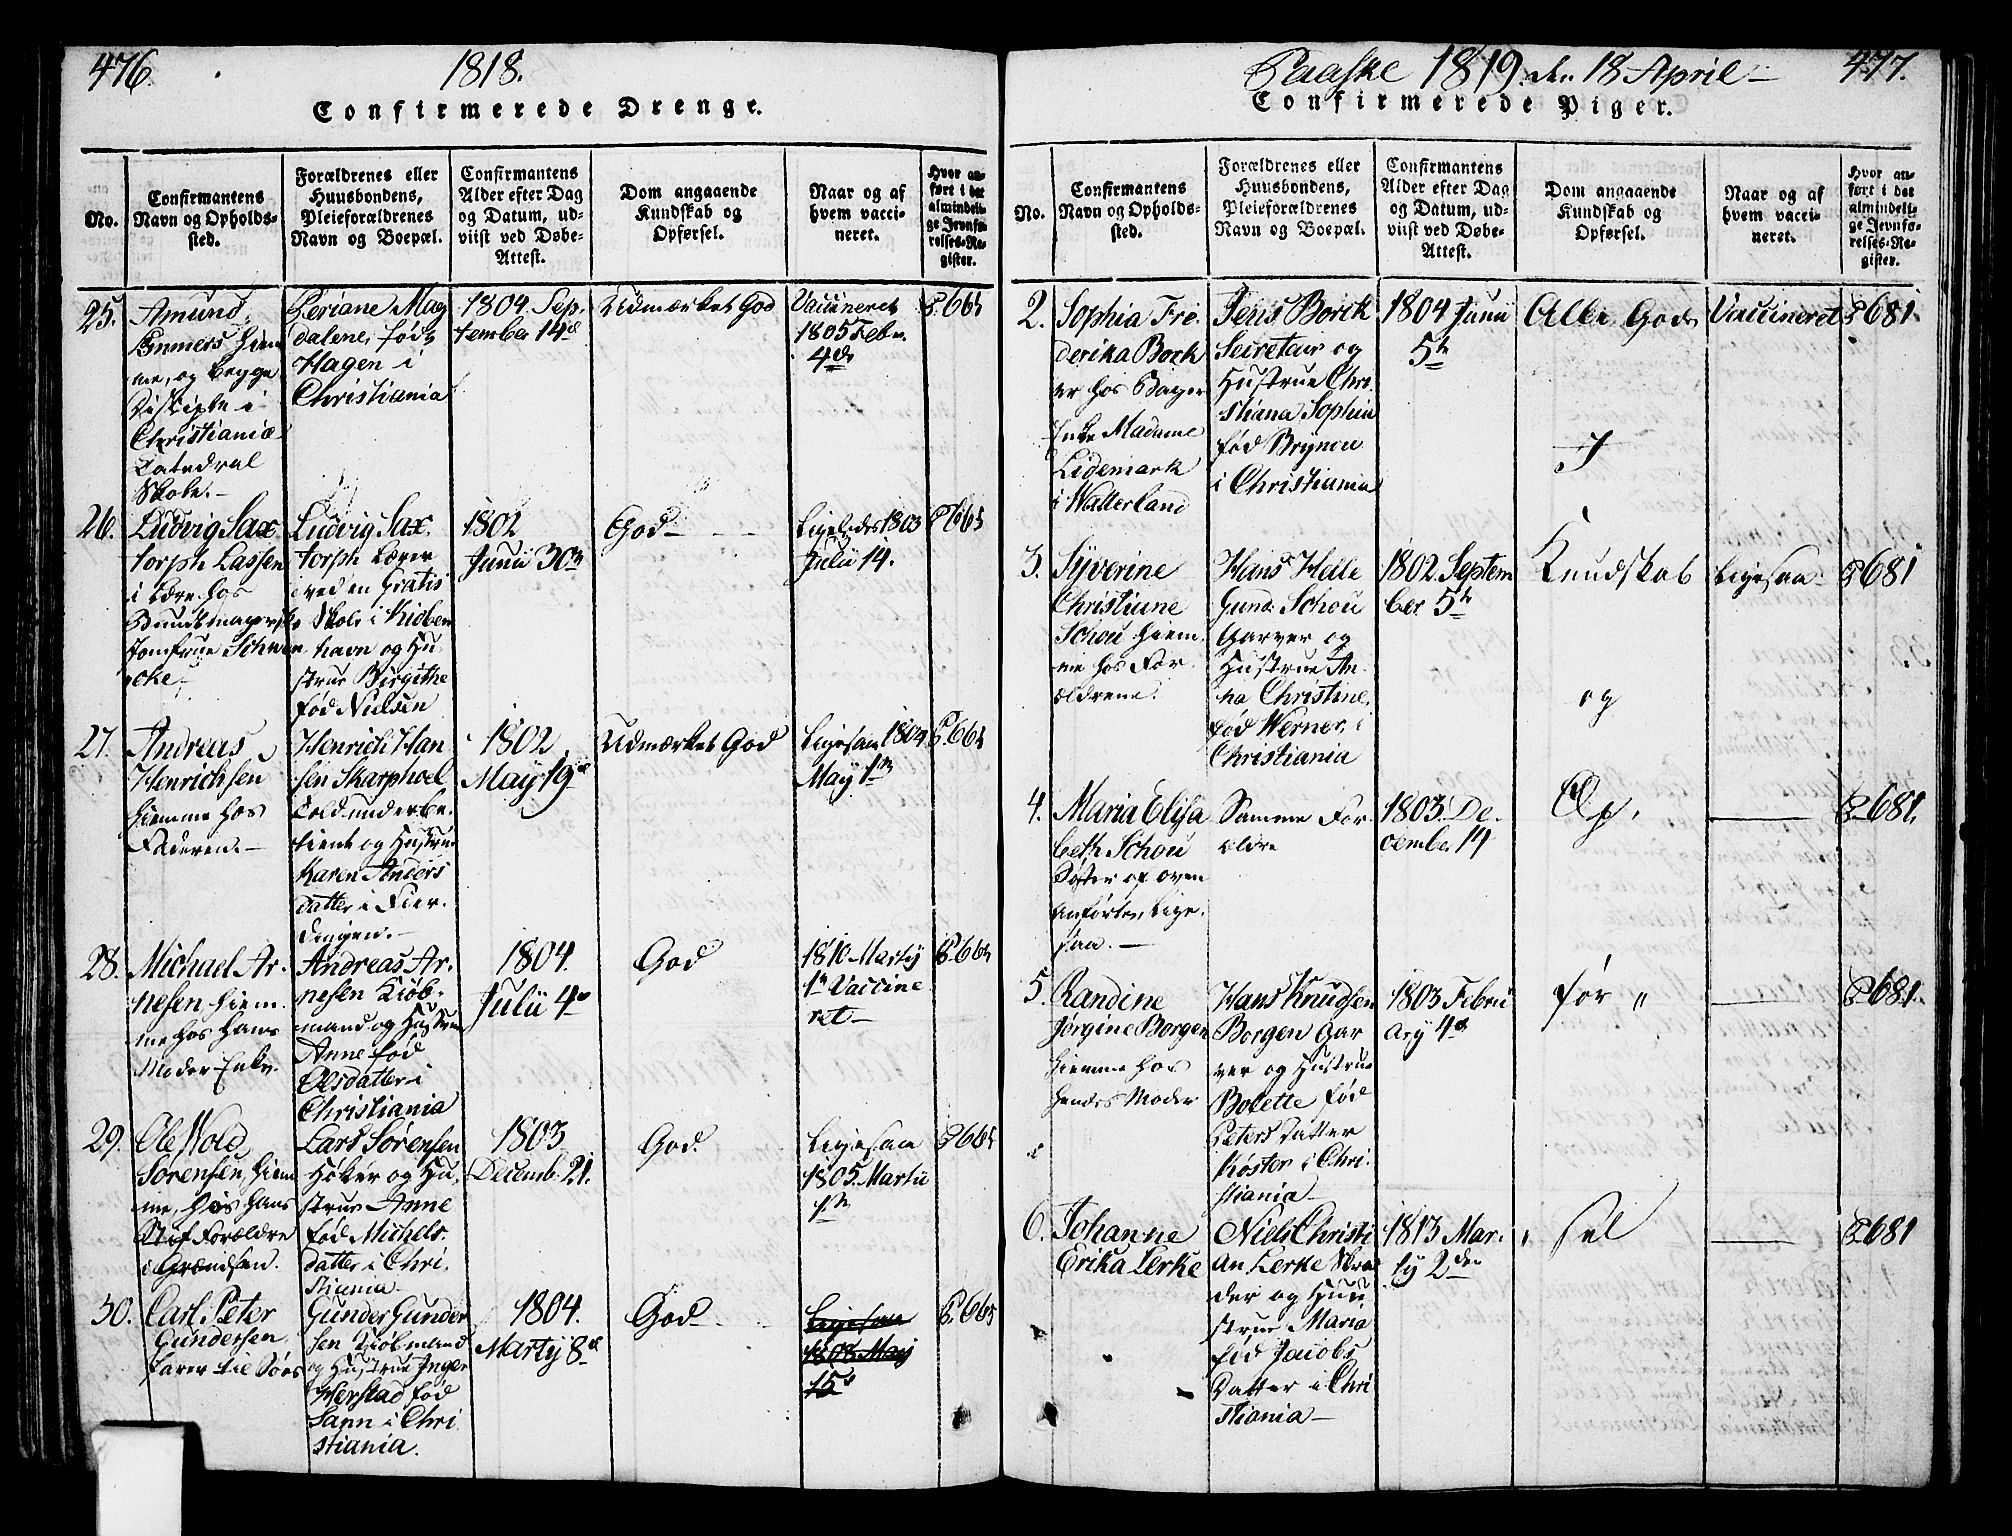 476.
1818.
Confirmerede Drenge.
No.
Confirmantens
Navn og Opholds-
sted.
Forældrenes eller
Huusbondens,
Pleieforældrenes
Navn og Boepæl.
Confirmantens
Alder efter Dag
og Datum, ud-
viist ved Døbe-
Attest.
Dom angaaende
Kundskab og
Opførsel.
Naar og af
hvem vacci-
neret.
Hvor an-
ført i det
almindeli-
ge Jevnfø-
relses-Re-
gister.
25.
Amund
hiem
me, og begge
Disciple i
Christianiæ
Catedral
Skole.
Periane Mag
dalene, fød
Hagen i
Christiania
1804. Sep-
tember 14d
Udmærket God
Vaccineret
1805 Febr.
4de
P. 665
26.
Ludvig Sax
torph Lassen
i Lære hos
Bundtmagerske
Jomfrue Schwen
cke
Ludvig Sax
torph Lærer
ved en Gratis
Skole i Kioben
havn og Hu
strue Birgithe
fød Nielsen
1802
Junii 30
God
Ligeledes 1803
Julii 14.
P 665
27.
Andreas
Henrichsen
hiemme hos
Faderen.
Henrich Han
sen Skarphoel
Toldunderbe-
tient og Hustrue
Karen Anders
datter i Fier-
dingen.
1802
May 19
Udmærket God
Ligesaa 1804
May 1
P. 665
28.
Michael Ar-
nesen hiem-
me hos hans
Moder Enke.
Andreas Ar-
nesen Kiøb-
mand og Hustrue
Anne fød
Olsdatter i
Christiania
1804.
Julii 4
God
1810 Marty
1 Vaccine
ret
P. 665
29.
Ole Wold
Sørensen, hiem
me, hos hans
Stif Forældre
i Grændsen.
Lars Sørensen
Høker og Hu-
strue Anne
fød Michels-
datter i Chri-
stiania
1803
Decemb. 21.
God.
Ligesaa
1805. Martii
P 665
30.
Carl Peter
Gundersen
farer til Søes
Gunder Gunder
sen Kiøbmand
og Hustrue Inger
Herstad fød
Sann i Chri
stiania.
1804.
Marty 8d
God
Ligesaa
1808 May
15
P. 665
Paaske 1819. den 18 April
477.
Confirmerede Piger.
No.
Confirmantens
Navn og Opholds-
sted.
Forældrenes eller
Huusbondens,
Pleieforældrenes
Navn og Boepæl.
Confirmantens
Alder efter Dag
og Datum, ud-
viist ved Døbe-
Attest.
Dom angaaende
Kundskab og
Opførsel.
Naar og af
hvem vacci-
neret.
Hvor an-
ført i det
almindeli-
ge Jevnfø-
relses-Re-
gister.
2.
Sophia Fre-
derika Bock
er hos Bager
Enke Madame
Lidemark
i Watterland
Jens Borck
Secretair og
Hustrue Chri-
stiana Sophia
fød Brynou
i Christiania
1804 Junii
5te
Alle Gode
I
Vaccineret
P 681
3.
Syverine
Christiane
Schou hiem-
me hos For-
ældrene.
Hans Helle
Gund. Schou
Garver og
Hustrue An-
na Christine
fød Werner, i
Christiania
1802. Septem
ber 5te
Kundskab
og
Ligesaa
P 681
4.
Maria Elisa
beth Schou
Søster af oven
anførte, Lige-
saa.
Samme For-
ældre
1803. De-
cember 14
Op,
P 681.
5.
Randine
Jørgine Borgen
hiemme hos
hendes Moder
Hans Knudsen
Borgen Gar
ver og Hustrue
Bolette fød
Peters Datter
Köster i Chri-
stiania
1803 Febru
ary 4d
før
P 681.
6.
Johanne
Erika Lerke
Niels Christi
an Lerke Skræ
der og Huu
strue Maria
fød Jacobs
Datter i Chri
stiania
1813 Mar-
ty 2den
sel
P 681